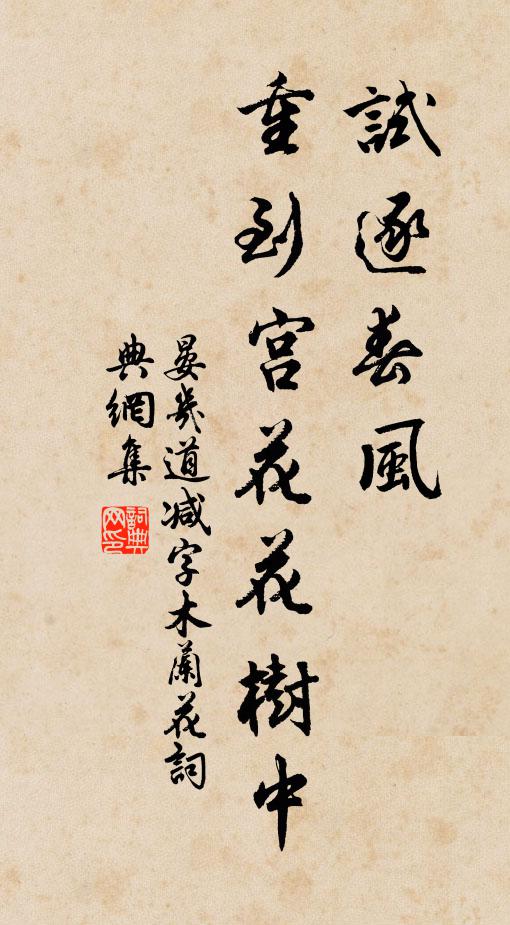 試逐春風
重到宮花花樹中
晏幾道減字木蘭花詞
典網集
詞典網印